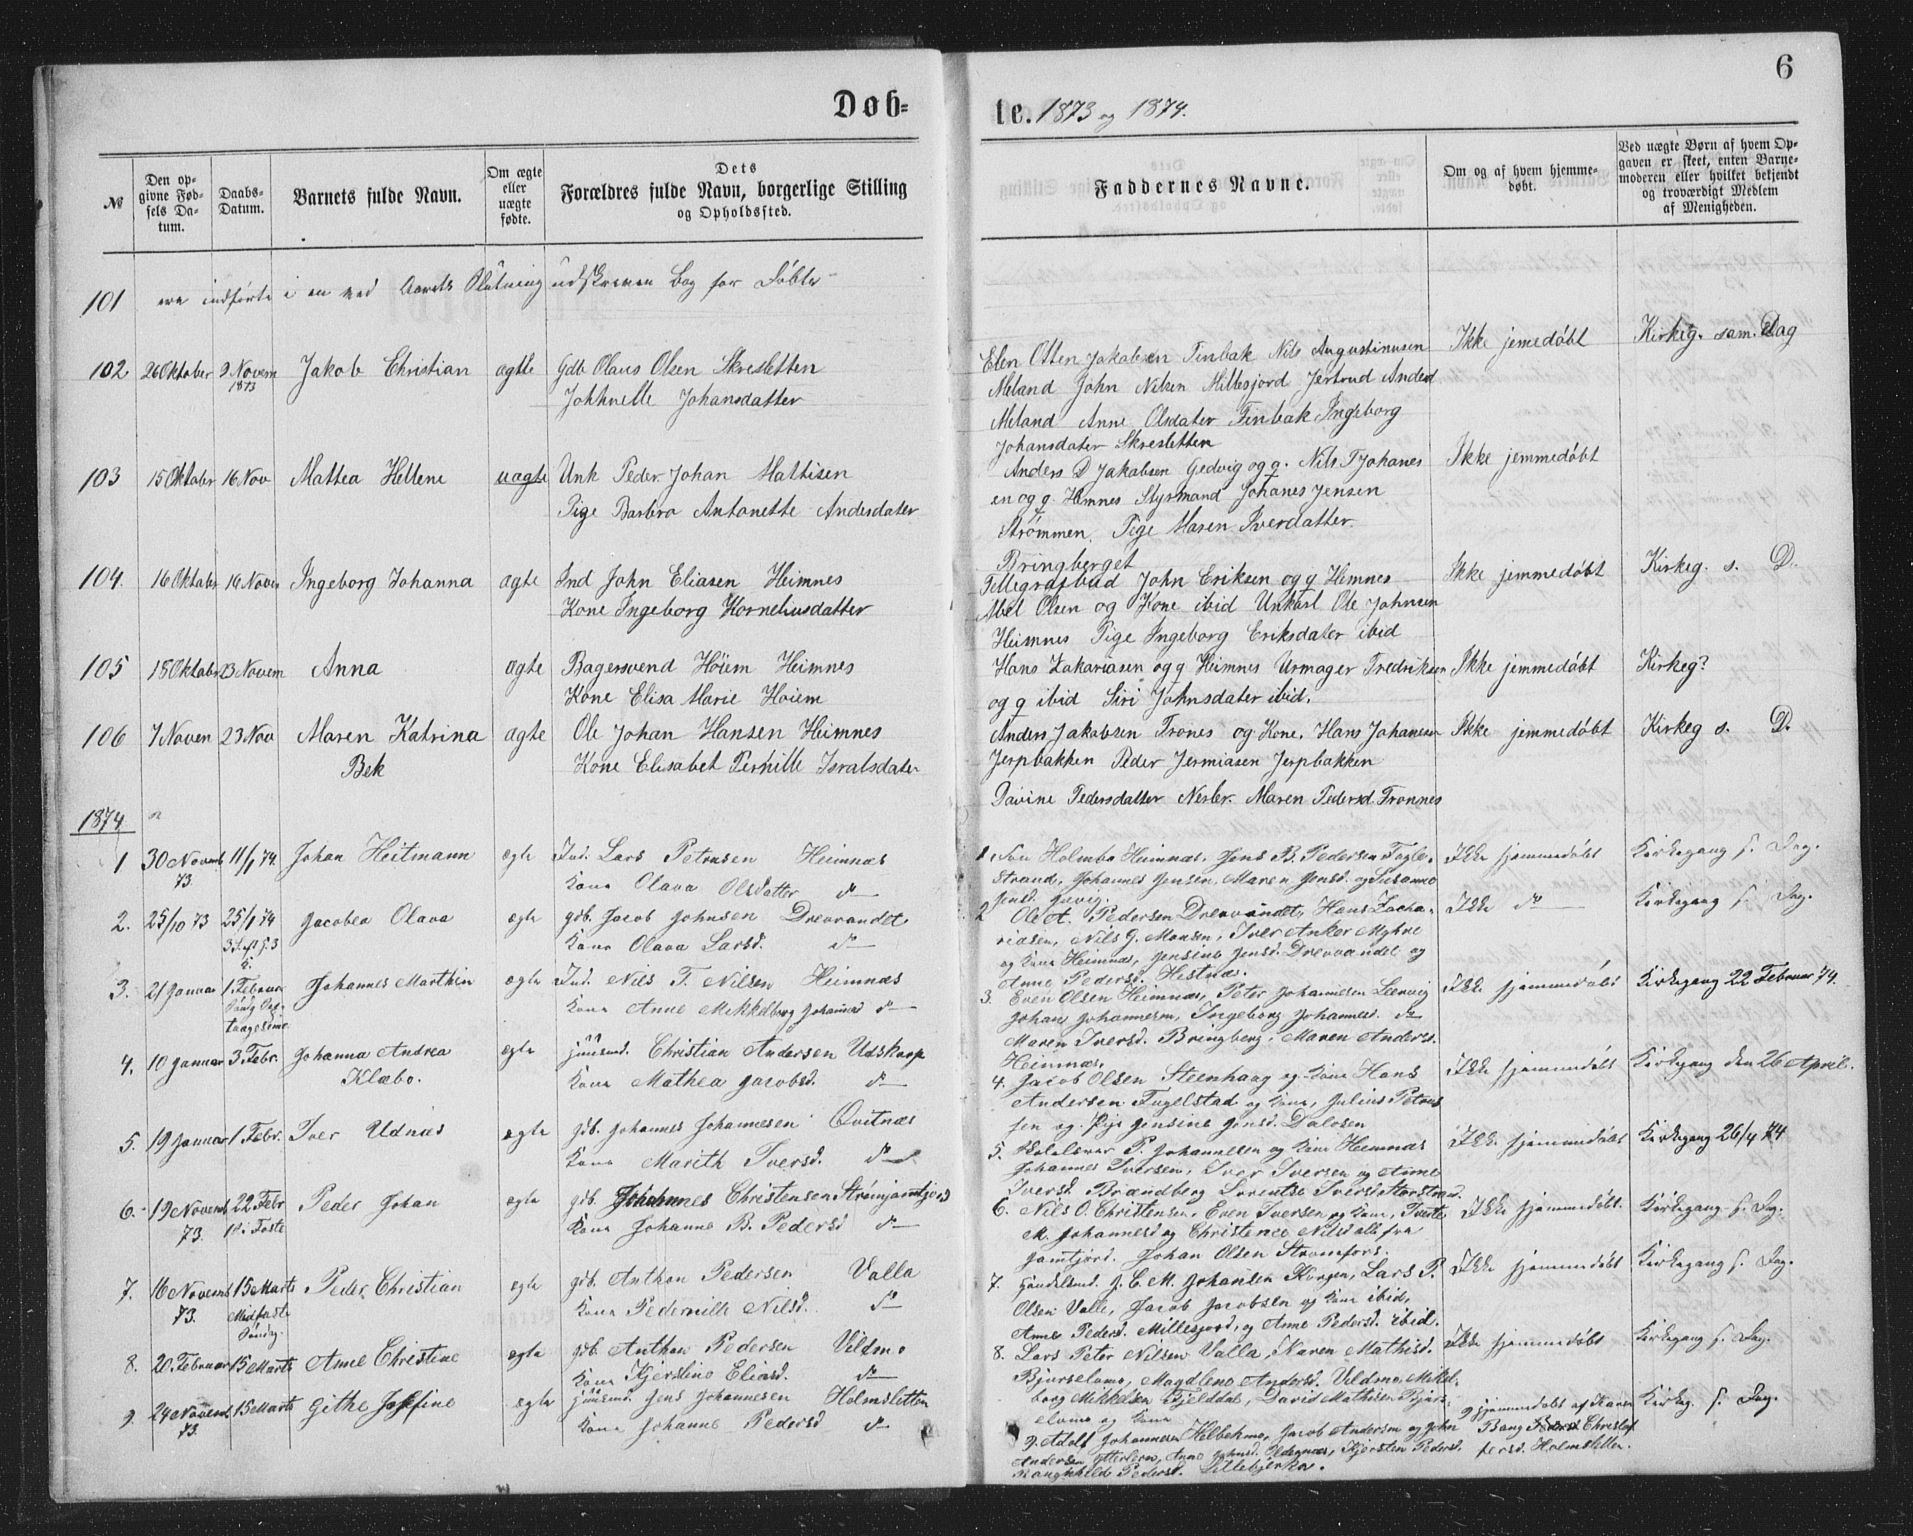 Døb=
te. 1873 og 1874.
6
№
Den opgivne Fødsels Datum.
Daabs-Datum.
Barnets fulde Navn.
Om ægte eller uægte fødte.
Dets Forældres fulde Navn, borgerlige Stilling og Opholdssted.
Faddernes Navne.
Om og af hvem hjemmedøbt.
Ved uægte Børn af hvem Opgaven er skeet, enten Barnemoderen eller hvilket bekjendt og troværdigt Medlem af Menigheden.
101 ere indførte i en ved Aarets Slutning udskreven Bog for Døbte
102 26 Oktober 2 Novem 1873 Jakob Christian ægte Gdb Olaus Olsen Skresletten
Johhnelle Johansdatter
Elen Otten Jakobsen Finbak Nils Augustinusen
Meland John Nilsen Millesjord Jertrud Andersd
Meland Anne Olsdater Finbak Ingeborg
Johansdater Skresletten
Ikke jemedøbt
Kirkeg. sam. Dag
103 15 Oktobr 16 Nov Mattea Hellene uægte Unk Peder Johan Mattisen
Pige Barbro Antonette Andersdater
Anders D Jakobsen Gedvig og q. Nils T Johanes
en og q. Hemnes Styrmand Johanes Jensen
Strømmen. Pige Maren Iverdatter
Bringberget
Ikke jemmedøbt
104. 16 Oktobr 16 Novem Ingeborg Johanna ægte Ind John Eliasen Heimnes
Kone Ingeborg Korneliusdatter
Tillegrafbud John Eriksen og q Hemnes
Abel Olsen og Kone ibid Unkarl Ole Johnsen
Heimnes Pige Ingeborg Eriksdater ibid
Ikke jemmedøbt
Kirkeg. s. D.
105 18 Oktobr 23 Novem Anna ægte Bagersvend Höiem Heimnes
Kone Elisa Marie Høiem
Hans Zakariasen og q Heimnes Urmager Fredriksen
og q ibid Siri Johnsdater ibid.
Ikke jemmedøbt
Kirkeg?
106 7 Noven 23 Nov Maren Katrina Bek ægte Ole Johan Hansen Heimnes
Kone Elisabet Pernille Israelsdater
Anders Jakobsen Trones og Kone. Hans Johanesen
Jerpbakken Peder Jermiasen Jerpbakken
Davine Pedersdatter Nesler. Maren Pedersd Tronnes
Ikke jemmedøbt
Kirkeg s. D.
1874
1 30 Novemb 73. 11/1 74. Johan Heitmann ægte Ind. Lars Petersen Heimnæs
Kone Olava Olsdatter do
1 Holmbo Heimnæs, Jens B. Pedersen Fagle-
strand, Johannes Jensen, Maren Jensd. og Susanne
Jensd.
Ikke hjemmedøbt
Kirkegang s. Dag.
2. 25/10 73 25/1 74 Jacobea Olava ægte gdb. Jacob Johnsen Drevvandet
Kone Olava Larsd. do
2 Ole A. Pedersen Drevvandet, Hans Zacha-
riasen, Nils G. Monsen, Iver Anker Myhre
og Kone Heimnæs, Jensine Jensd. Drevvandet og
Anne Pedersd. Hestnæs.
Ikke do
Kirkegang s. Dag.
3. 21 Januar 1 Februar Johannes Marthin ægte Ind. Nils T. Nilsen Heimnæs
Kone Anne Mekkelborg Johannesd do
3. Even Olsen Heimnæs, Peter Johannesen Leervig
Johan Johannesen, Ingeborg Johannesd. do
Maren Iversd. Bringberg, Maren Andersd.
Heimnæs.
Ikke hjemmedøbt
Kirkegang 22 Februar 74.
4. 10 Januar 3 Febr. Johanna Andrea Klæbo. ægte Christian Andersen Udskarp
Kone Mathea Jacobsd. do
4. Jacob Olsen Steenhaug og Kone Hans
Andersen Fugelstad og Kone, Julius Peters
sen og Pige Jensine Jensd. Dalosen
Ikke hjemmedøbt
Kirkegang den 26 April.
5. 19 Januar 1 Febr. Iver Udnæs ægte gdb. Johannes Johannesen Qvitnæs
Kone Marith Iversd. do
5. P. Johannesen og Kone Heimnæs
Johannes Iversen, Iver Iversen og Anne
Iversd. Brændberg Lorentse Iversd Storstrand.
Ikke hjemmedøbt
Kirkegang 26/4 74
6. 19 Novemb 73. 22 Febr 1 i Faste Peder Johan ægte gdb. Johannes Christensen
Kone Johanne B. Pedersd do
6. Nils O. Christensen, Even Iversen og Kone,
M. Johannesd og Christence Nilsd alle fra
Jamtjord. Johan Olsen Stromfors.
Ikke hjemmedøbt.
Kirkegang s. Dag.
7. 16 Novemb 73. 15 Marts Midfaste Søndag. Peder Christian ægte gdb. Anthon Pedersen Valla
Kone Pedernille Nilsd. do
7. J. C. M. Johansen Korgen, Lars P.
Olsen Valle, Jacob Jacobsen og Kone ibid,
Anne Pedersd. Millesjord, og Anne Pedersd. ibid.
Ikke hjemmedøbt
Kirkegang s. Dag.
8. 20. Februar 15 Marts Anne Christine ægte gdb. Anthon Pedersen Vildmo
Kone Kjerstine Eliasd. do
8. Lars Peter Nilsen Valla, Karen Mathisd.
Bjurselvmo, Magdlene Andersd. Vildmo, Mikel-
borg Mikkelsen Fjelldal, David Mathisen Bjurs-
elvmo og Kone
Ikke hjemmedøbt
Kirkegang s. Dag.
9. 24 Novemb. 73. 15 Marts Githe Josefine ægte Jens Johannesen Holmsletten
Kone Johanne Pedersd do
9. Adolf Johannesen Jacob Andersen og John
Andersen Ytterleren, Anne Johnsd. Kjersten Pedersd.
Ranghilde Pedersd. Lillebjerka.
9 hjemmedøbt af Karen
Bang Christof
fersd. Holmsletten.
Kirkeg. s. Dag.